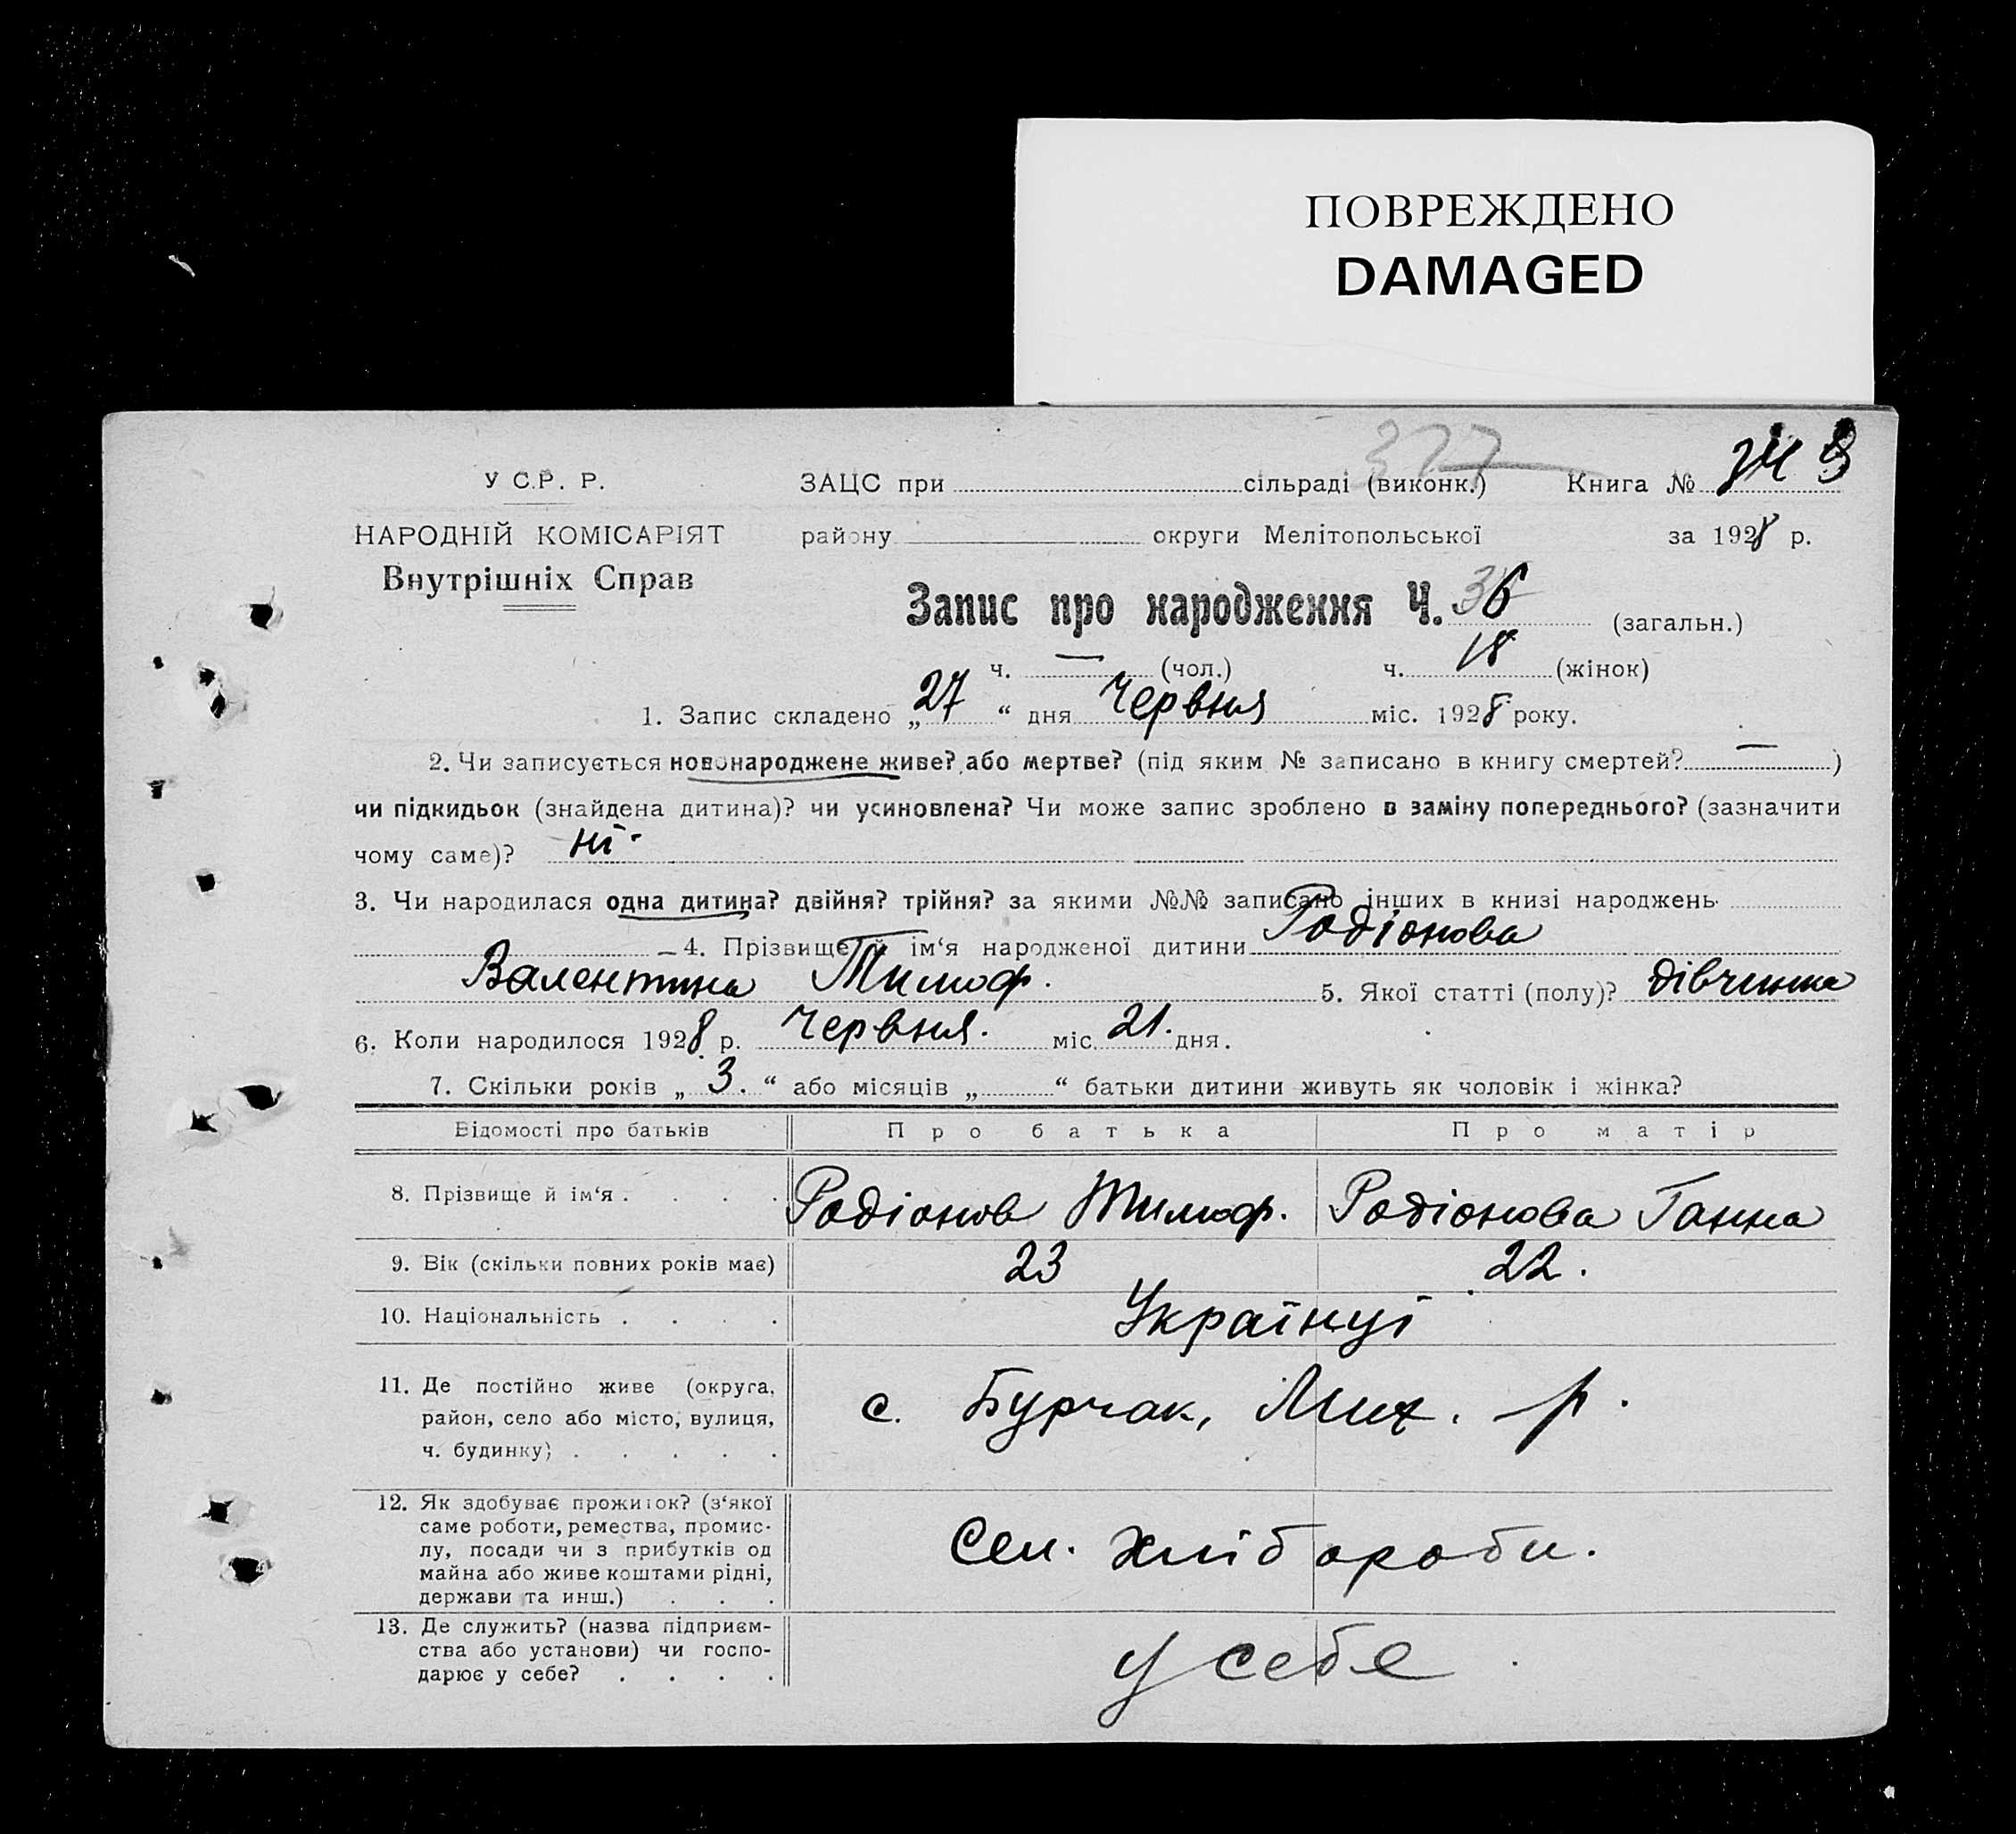 ПОВРЕЖДЕНО
DAMAGED
377
У С.Р. Р.
ЗАЦС при сільраді (виконк.) Книга №
НАРОДНІЙ КОМІСАРІЯТ
району округи Мелітопольської за 1928 р.
Внутрішніх Справ
Запис про народження Ч. 36 (загальн.)
ч. — (чол.) ч. 18 (жінок)
1. Запис складено „27“ дня Червня міс. 1928 року.
2. Чи записується новонароджене живе? або мертве? (під яким № записано в книгу смертей? — )
чи підкидьок (знайдена дитина)? чи усиновлена? Чи може запис зроблено в заміну попереднього? (зазначити
чому саме)? ні.
3. Чи народилася одна дитина? двійня? трійня? за якими №№ записано інших в книзі народжень
4. Прізвище й ім‘я народженої дитини Родіонова
Валентина Тимоф. 5. Якої статті (полу)? дівчинка
6. Коли народилося 1928 р. Червня. міс. 21. дня.
7. Скільки років „3.“ або місяців „ “ батьки дитини живуть як чоловік і жінка?
Відомості про батьків Про батька Про матір
8. Прізвище й ім‘я . . . . Родіонов Тимоф. Родіонова Ганна
9. Вік (скільки повних років має) 23 22.
10. Національність . . . . Українці
11. Де постійно живе (округа,
район, село або місто, вулиця,
ч. будинку) . . . . .
с. Бурчак, Мих. р.
12. Як здобуває прожиток? (з‘якої
саме роботи, ремества, промис-
лу, посади чи з прибутків од
майна або живе коштами рідні,
держави та инш.) . . .
Сел. хлібороби.
13. Де служить? (назва підприєм-
ства або установи) чи госпо-
дарює у себе? . . . .
у себе